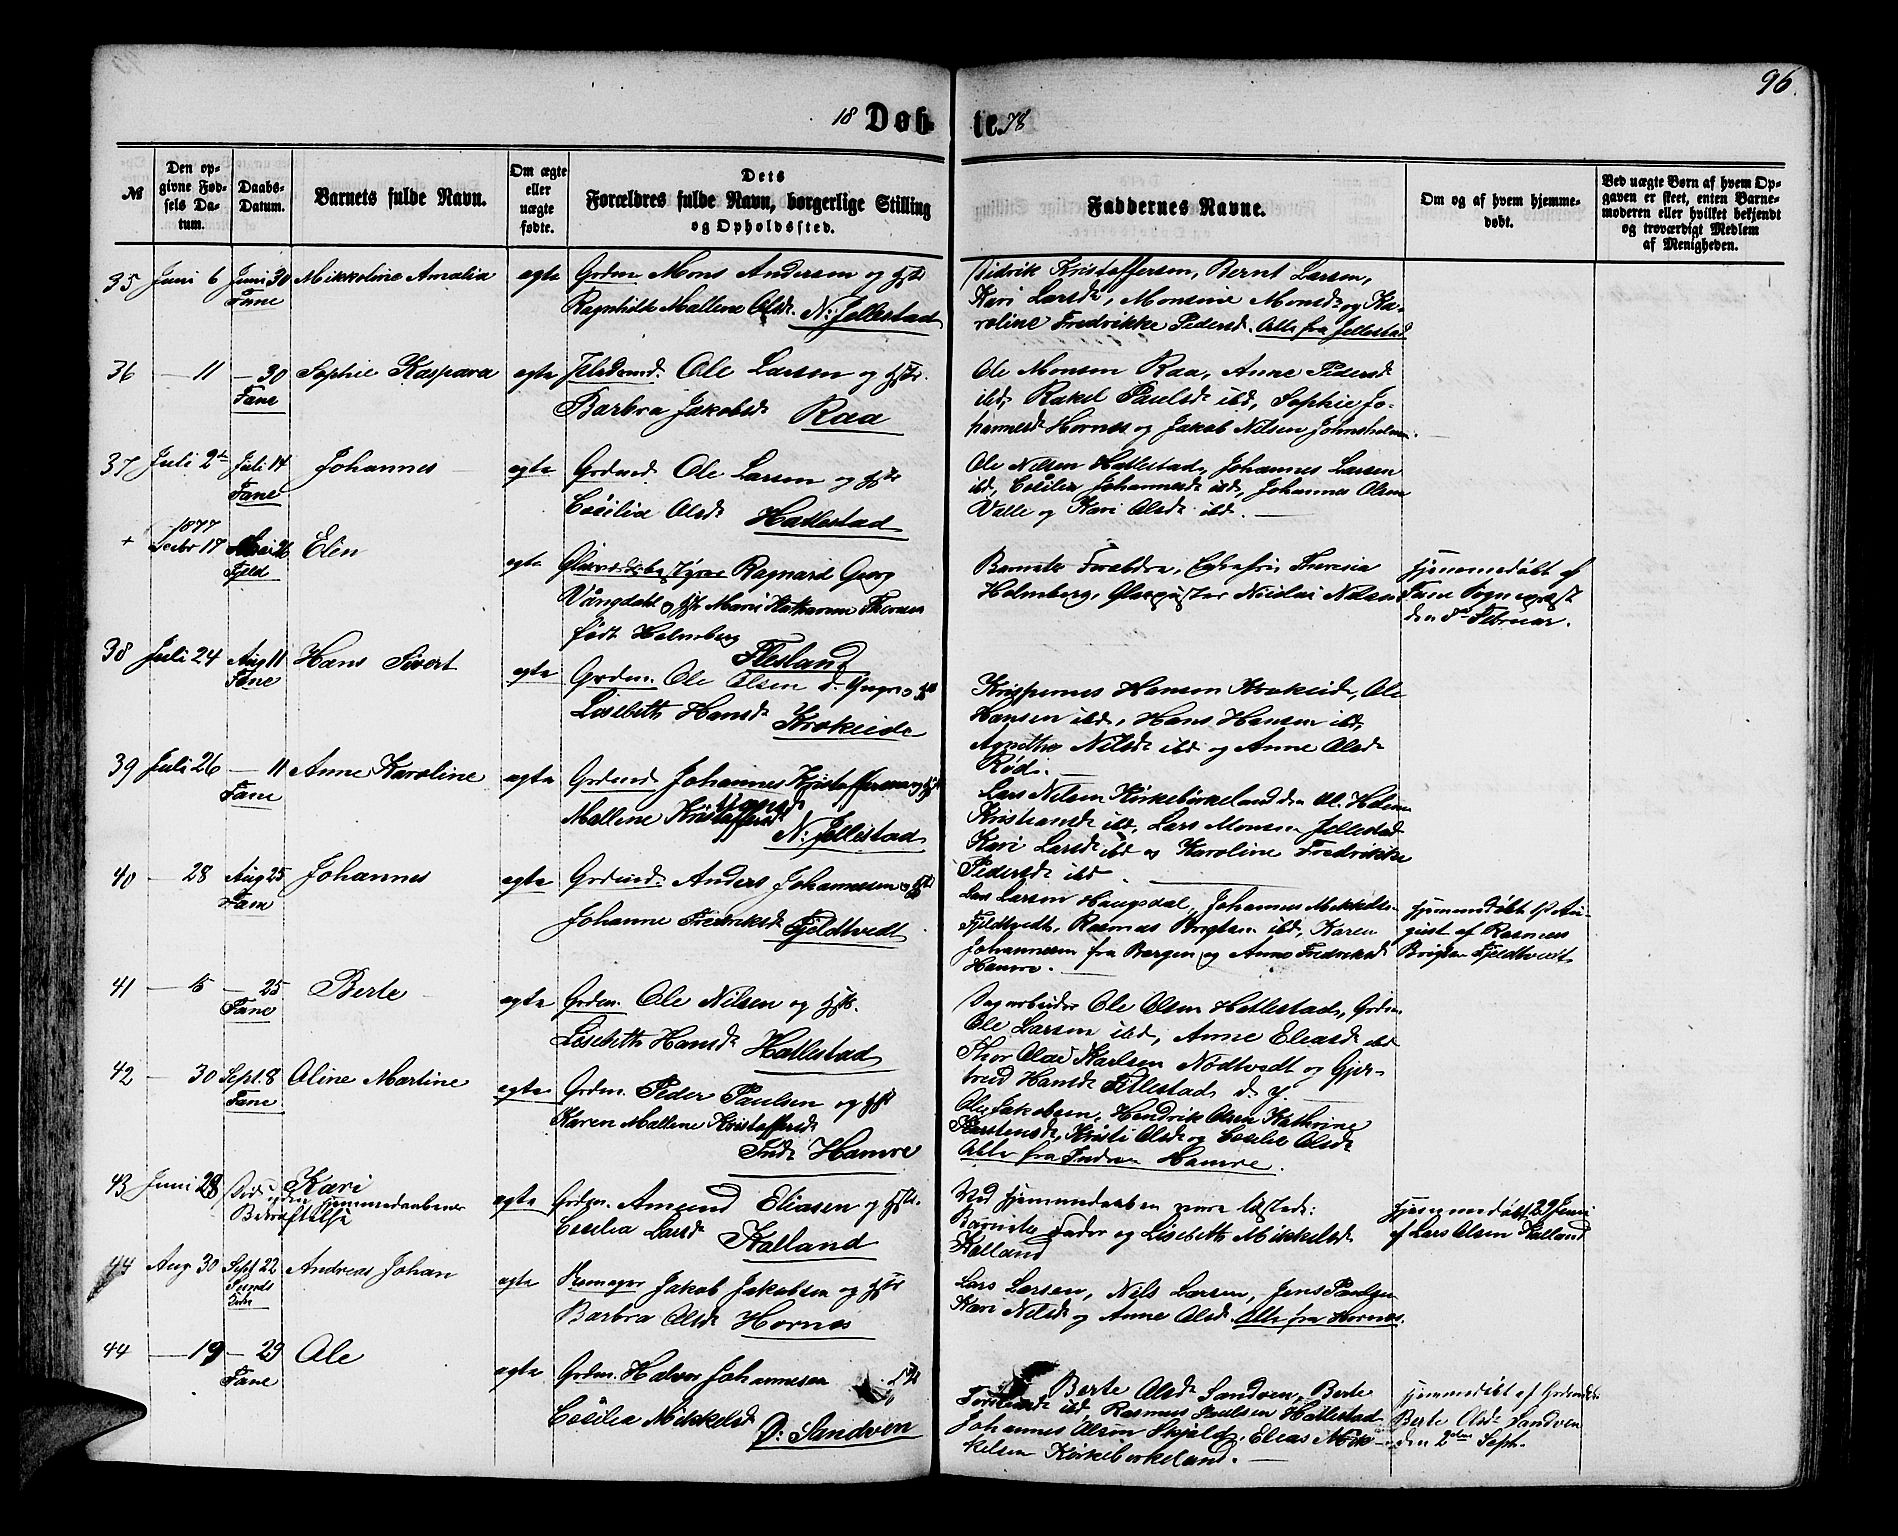 96.
18 Døb- te. 78
№
Den op-
givne Fød-
sels Da-
tum.
Daabs-
Datum.
Barnets fulde Navn.
Om ægte
eller
uægte
fødte.
Dets
Forældres fulde Navn, borgerlige Stilling
og Opholdssted.
Faddernes Navne.
Om og af hvem hjemme-
døbt.
Ved uægte Børn af hvem Op-
gaven er skeet, enten Barne-
moderen eller hvilket bekjendt
og troværdigt Medlem
af Menigheden.
35 Juni 6 Juni 30 Mikkoline Amalia egte Grdm. Mons Andersen og Hstr
Fane Ragnhilde Mallene Olsd. N: Jellestad
Didrik Kristoffersen, Bernt Larsen,
Kari Larsd, Monsine Monsd og Ka-
roline Fredrikke Pedersd. Alle fra Jellestad
36 — 11 — 30 Sophie Kaspara egte Ole Larsen og Hstr.
Fane Barbra Jakobsd Raa
Ole Monsen Raa, Anne Pedersd
ibd, Rakel Paulsd ibd, Sophie Jo-
hannesd Hornes og Jakob Nilsen Johnsholmen.
37 Juli 2 Juli 14 Johannes egte Grdmd. Ole Larsen og Hstr
Fane Cesilia Olsd Hatlestad
Ole Nilsen Hatlestad, Johannes Larsen
ibd, Cesilia Johannesd ibd, Johannes Olsen
Valle og Kari Olsd ibd. —
+ 1877
Decbr 17 Mai 26 Elen egte Ragnard Georg
Fjeld Vångdahl og Hstr Marie Katharine Theresia
født Holmberg
Flesland
Barnets Forældre, Theresia
Holmberg, Nicolai Nilsen
Hjemmedøbt af
Fane Sognepræst
den Februar.
38 Juli 24 Aug 11 Hans Sivert egte Grdm. Ole Olsen d. Yngre og Hstr
Fane Lisebeth Hansd Krokeide
Krispernes Hansen Krokeide, Ole
Hansen ibd, Hans Hansen ibd,
Agnethe Nilsd ibd og Anne Olsd
Rød. —
39 Juli 26 — 11 Anne Karoline egte Grdmd. Johannes Kristoffersen og Hstr
Fane Mallene Kristoffersd Monsd
N: Jellestad
Lars Nilsen Kirkebirkeland den
Kristiansd ibd, Lars Monsen Jellestad
Kari Larsd ibd og Karoline Fredrikke
Pedersd ibd
40 — 28 Aug 25 Johannes egte Grdmd. Anders Johannesen og Hstr
Fane Johanne Fredriksd Fjeldtvedt
Lars Larsen Haugsdal, Johannes Mikkels-
Fjeldtvedt, Rasmus Brigtsen ibd, Karen
Johannesen fra Bergen og Anne Fredriksd
Hamre. —
Hjemmedøbt 1/8 Au-
gust af Rasmus
Brigtsen Fjeldtvedt
41 — 15 — 25 Berte egte Grdm. Ole Nilsen og Hstr.
Fane Lisebeth Hansd Hatlestad
Dagarbeider Ole Olsen Hatlestad, Grdm
Ole Larsen ibd, Anne Eliasd ibd
Thor Olai Karlsen Nødtvedt og Gjer-
trud Hansd Titlestad d. y. —
42 — 30 Sept. 8 Aline Martine egte Grdm. Peder Paulsen og Hstr
Fane Karen Mallene Kristoffersd
Indr Hamre
Ole Jakobsen, Hendrik Olsen Kathrine
Karstensd, Kristi Olsd og Cesilie Olsd
Alle fra Indre Hamre.
43 Juni 28 Død uden Kari
Hjemmedaabens
Bekræftelse egte Grdm. Amund Eliasen og Hstr.
Cecilia Larsd Kalland
Ved Hjemmedaaben vare tilstede:
Barnets Fader og Lisebeth Mikkelsd
Kalland
Hjemmedøbt 29 Juni
af Lars Olsen Kalland
44 Aug 30 Sept 22 Andreas Johan egte Jakob Jakobsen og Hstr
Barbra Olsd Hornes
Lars Larsen, Nils Larsen, Jens Paulsen
Kari Nilsd og Anne Olsd. Alle fra Hornes.
44 — 19 — 29 Ole egte Grdm. Halvor Johannesen
Fane Cesilia Mikkelsd Ø: Sandven
Berte Olsd Sandven, Berte
ibd Rasmus Paulsen Hatlestad
Johannes Olson Skjold, Elias Mik-
kelsen Kirkebirkeland. —
Hjemmedøbt af
Berte Olsd Sandven
den 2den Sept.